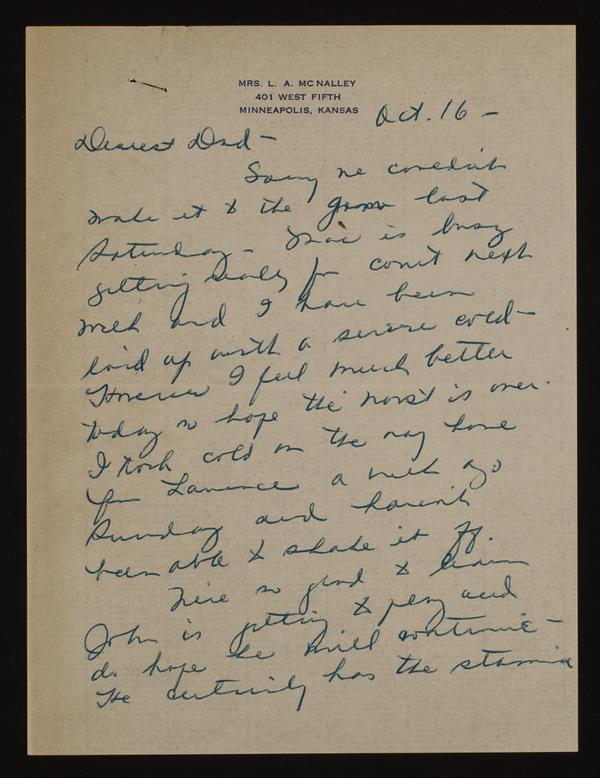 MRS. L. A. MCNALLEY
401 WEST FIFTH
MINNEAPOLIS, KANSAS
Oct. 16 -
Dearest Dad -
Sorry we couldn't
make it to the game last
Saturday - Mac is busy
getting ready for court next
week and I have been
laid up with a severe cold -
However I feel much better
today so hope the worst is over.
I took cold on the way home
from Lawrence a week ago
Sunday and haven't
been able to shake it off.
We're so glad to learn
John is getting to play and
do hope he will continue -
He certainly has the stamina